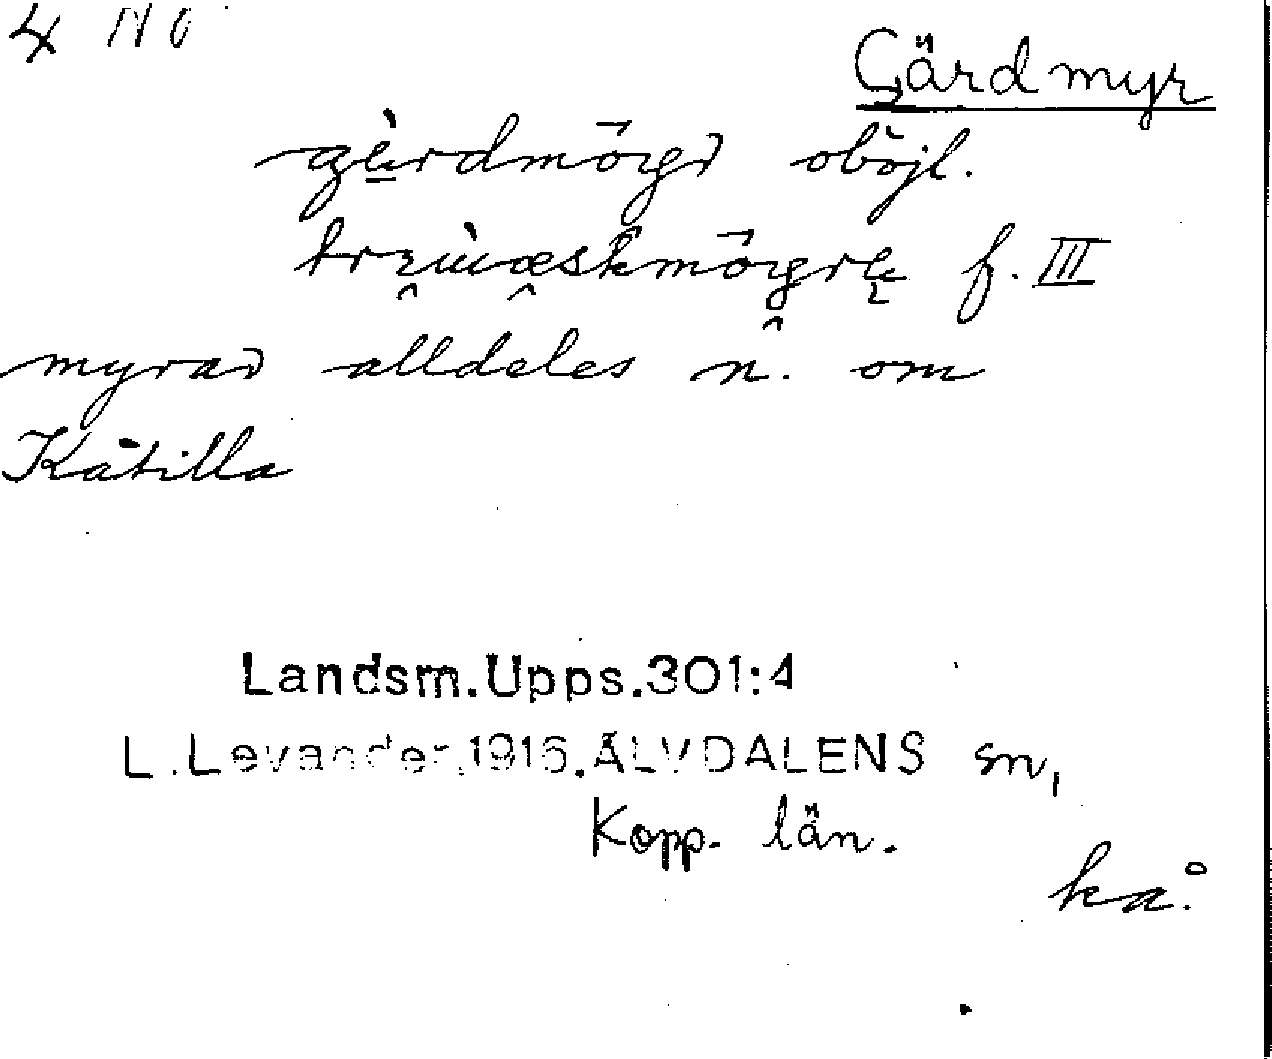 4 NO
Gärdmyr
oböjl.
f. III
myrar alldeles n. om
Kåtilla
Landsm.Upps.301:4
L.Levander.1916.ÄLVDALENS sn,
Kopp. län.